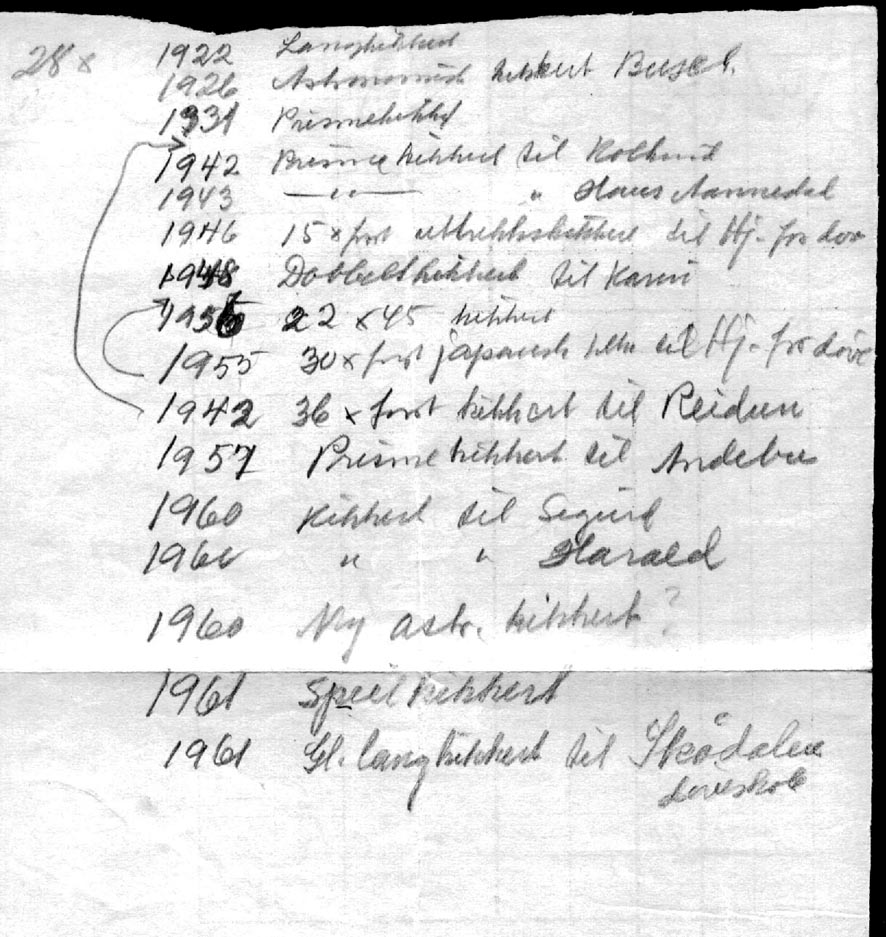 28 x
1922 Langkikkert
1926 Astronomisk kikkert Busch.
1931 Prismekikkert
1942 Prismekikkert til
1943 —〃— 〃 Hans Aannedal
1946 15 x forst uttrekkskikkert til Hj. for døve
1948 Dobbeltkikkert til Karin
1956 22 x 45 kikkert
1955 30 x forst japansk kikk til Hj. for døve
1942 36 x forst kikkert til Reidun
1957 Prismekikkert til Andebu
1960 Kikkert til Sigurd
1960 〃 〃 Harald
1960 Ny astr. kikkert ?
1961 Speilkikkert
1961 Gl. langkikkert til Skådalen
døveskole